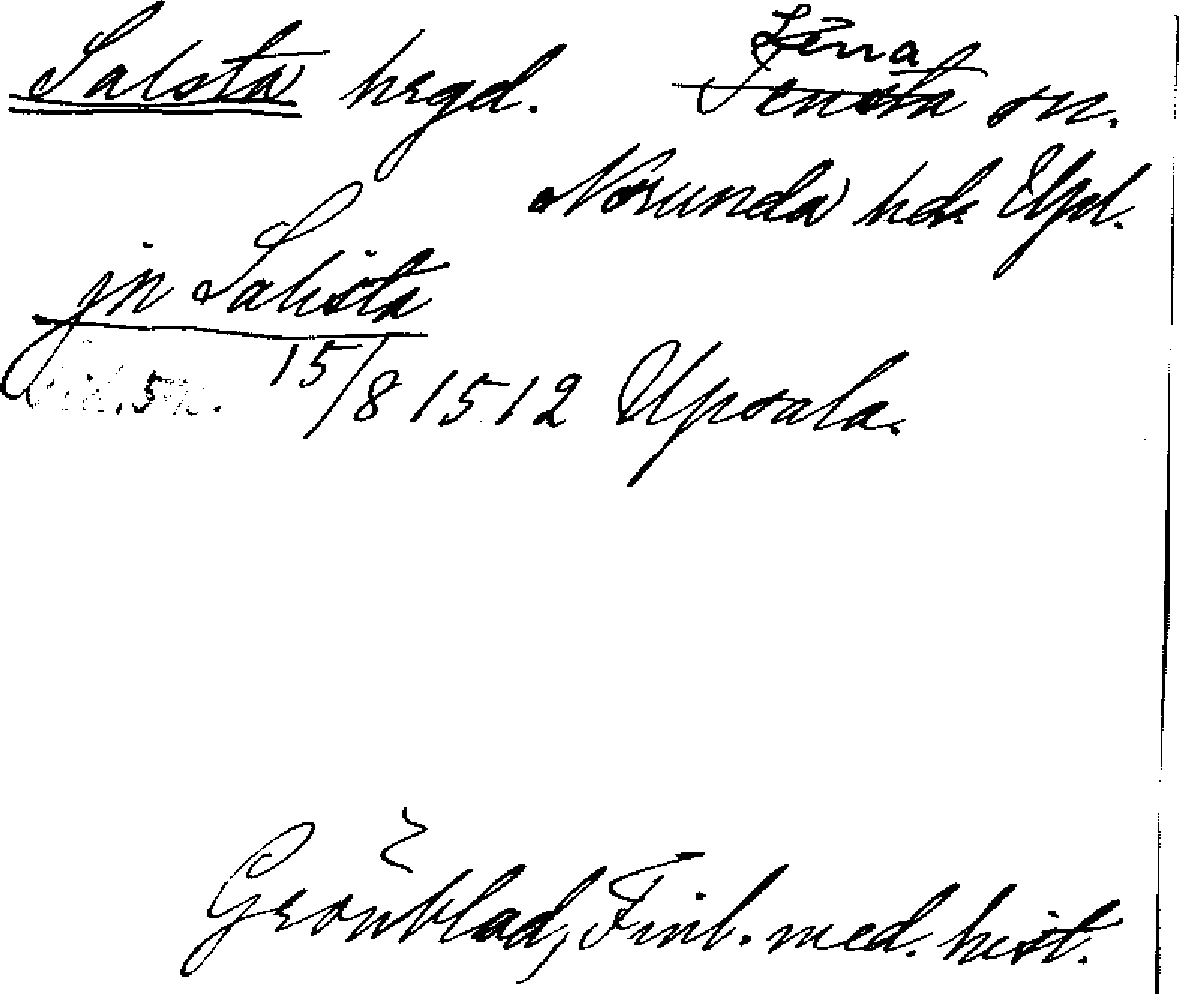 Salsta hrgd. Lena
Tensta sn.
Norunda hd. Upl.
jn Salista
15/8 1512 Upsala.
Grönblad, Finl. med. hist.